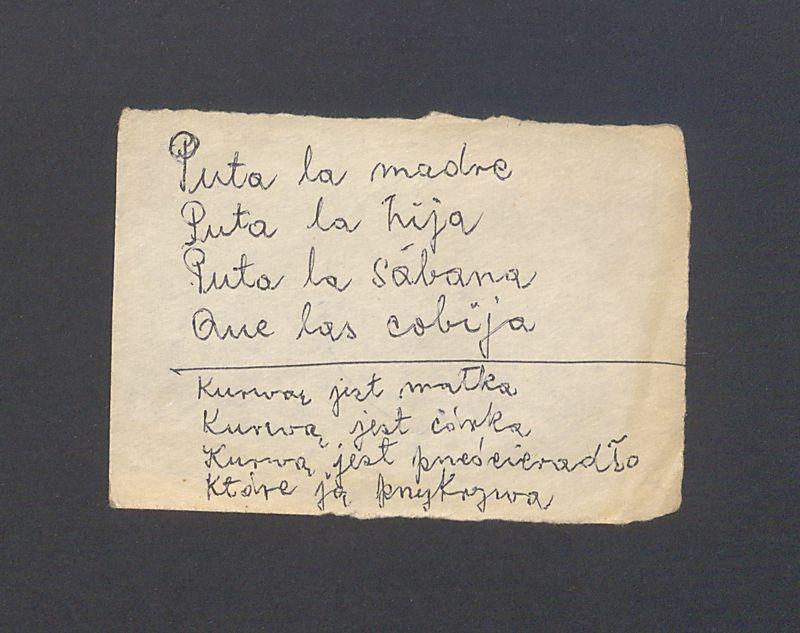 Puta la madre
Puta la hija
Puta la sábana
Que las cobija
Kurwą jest matka
Kurwą jest córka
Kurwą jest prześcieradło
Które ją przykrywa